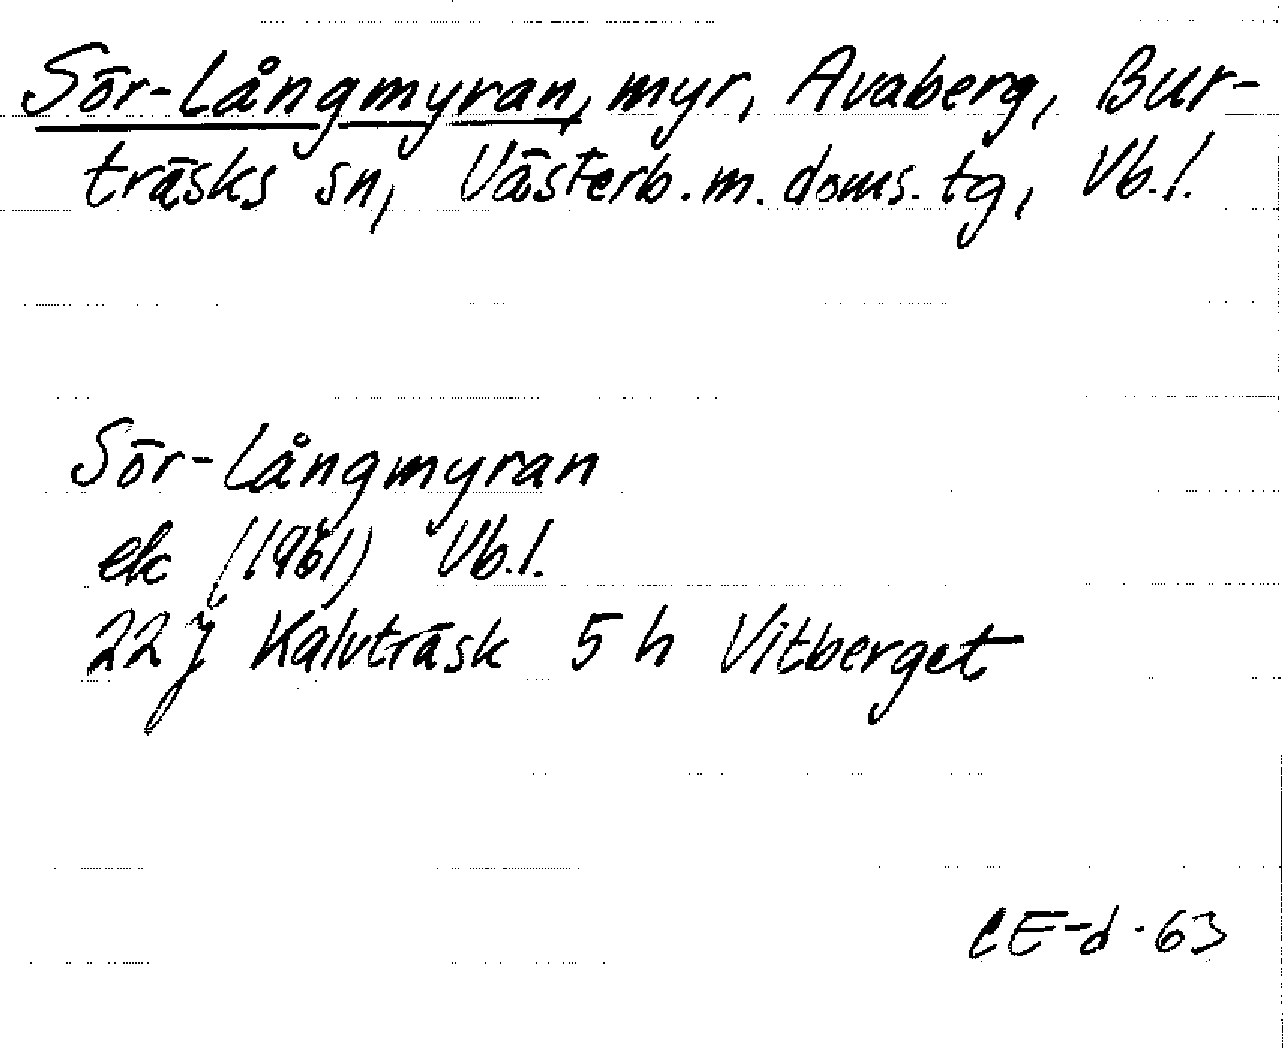 Sör-Långmyran, myr, Avaberg, Bur-
träsks sn, Västerb.m. doms. tg, Vb.l.
Sör-Långmyran
ek (1961) Vb.l.
22 J Kalvträsk 5 h Vitberget
CE-d-63